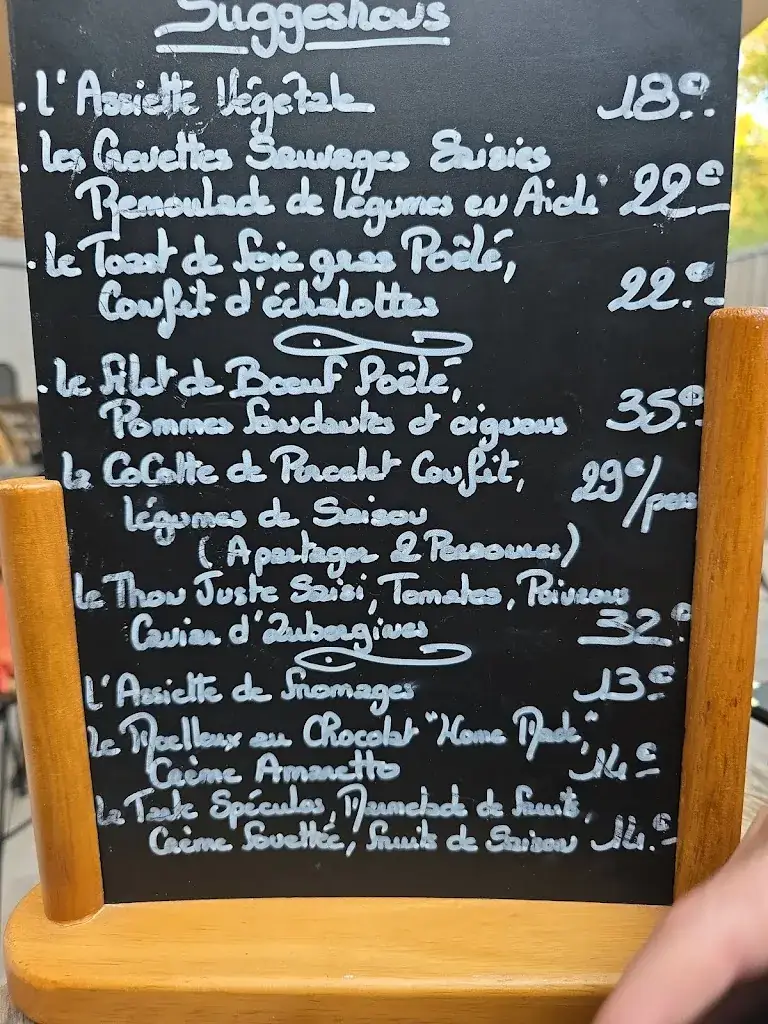 Suggestions
. L'Assiette Végétale 18€.
. Les Crevettes Sauvages Saisies
Remoulade de légumes en Aioli 22€
. Le Toast de foie gras Poêlé,
Confit d'échalottes 22.€
. Le filet de Bœuf Poêlé,
Pommes fondantes et oignons 35€.
Le CoCotte de Porcelet Confit, 29€/pers
légumes de Saison
(A partager 2 Personnes)
Le Thon Juste Saisi, Tomates, Poivrons
Caviar d'Aubergines 32€
L'Assiette de fromages 13€
Le Moelleux au Chocolat "Home Made,"
Crème Amaretto 14€
La Tarte Spéculos, Marmelade de fruits,
Crème fouettée, fruits de Saison 14.€